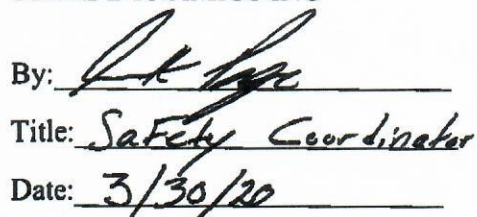 By:
Title: Safety Coordinator
Date: 3/30/20